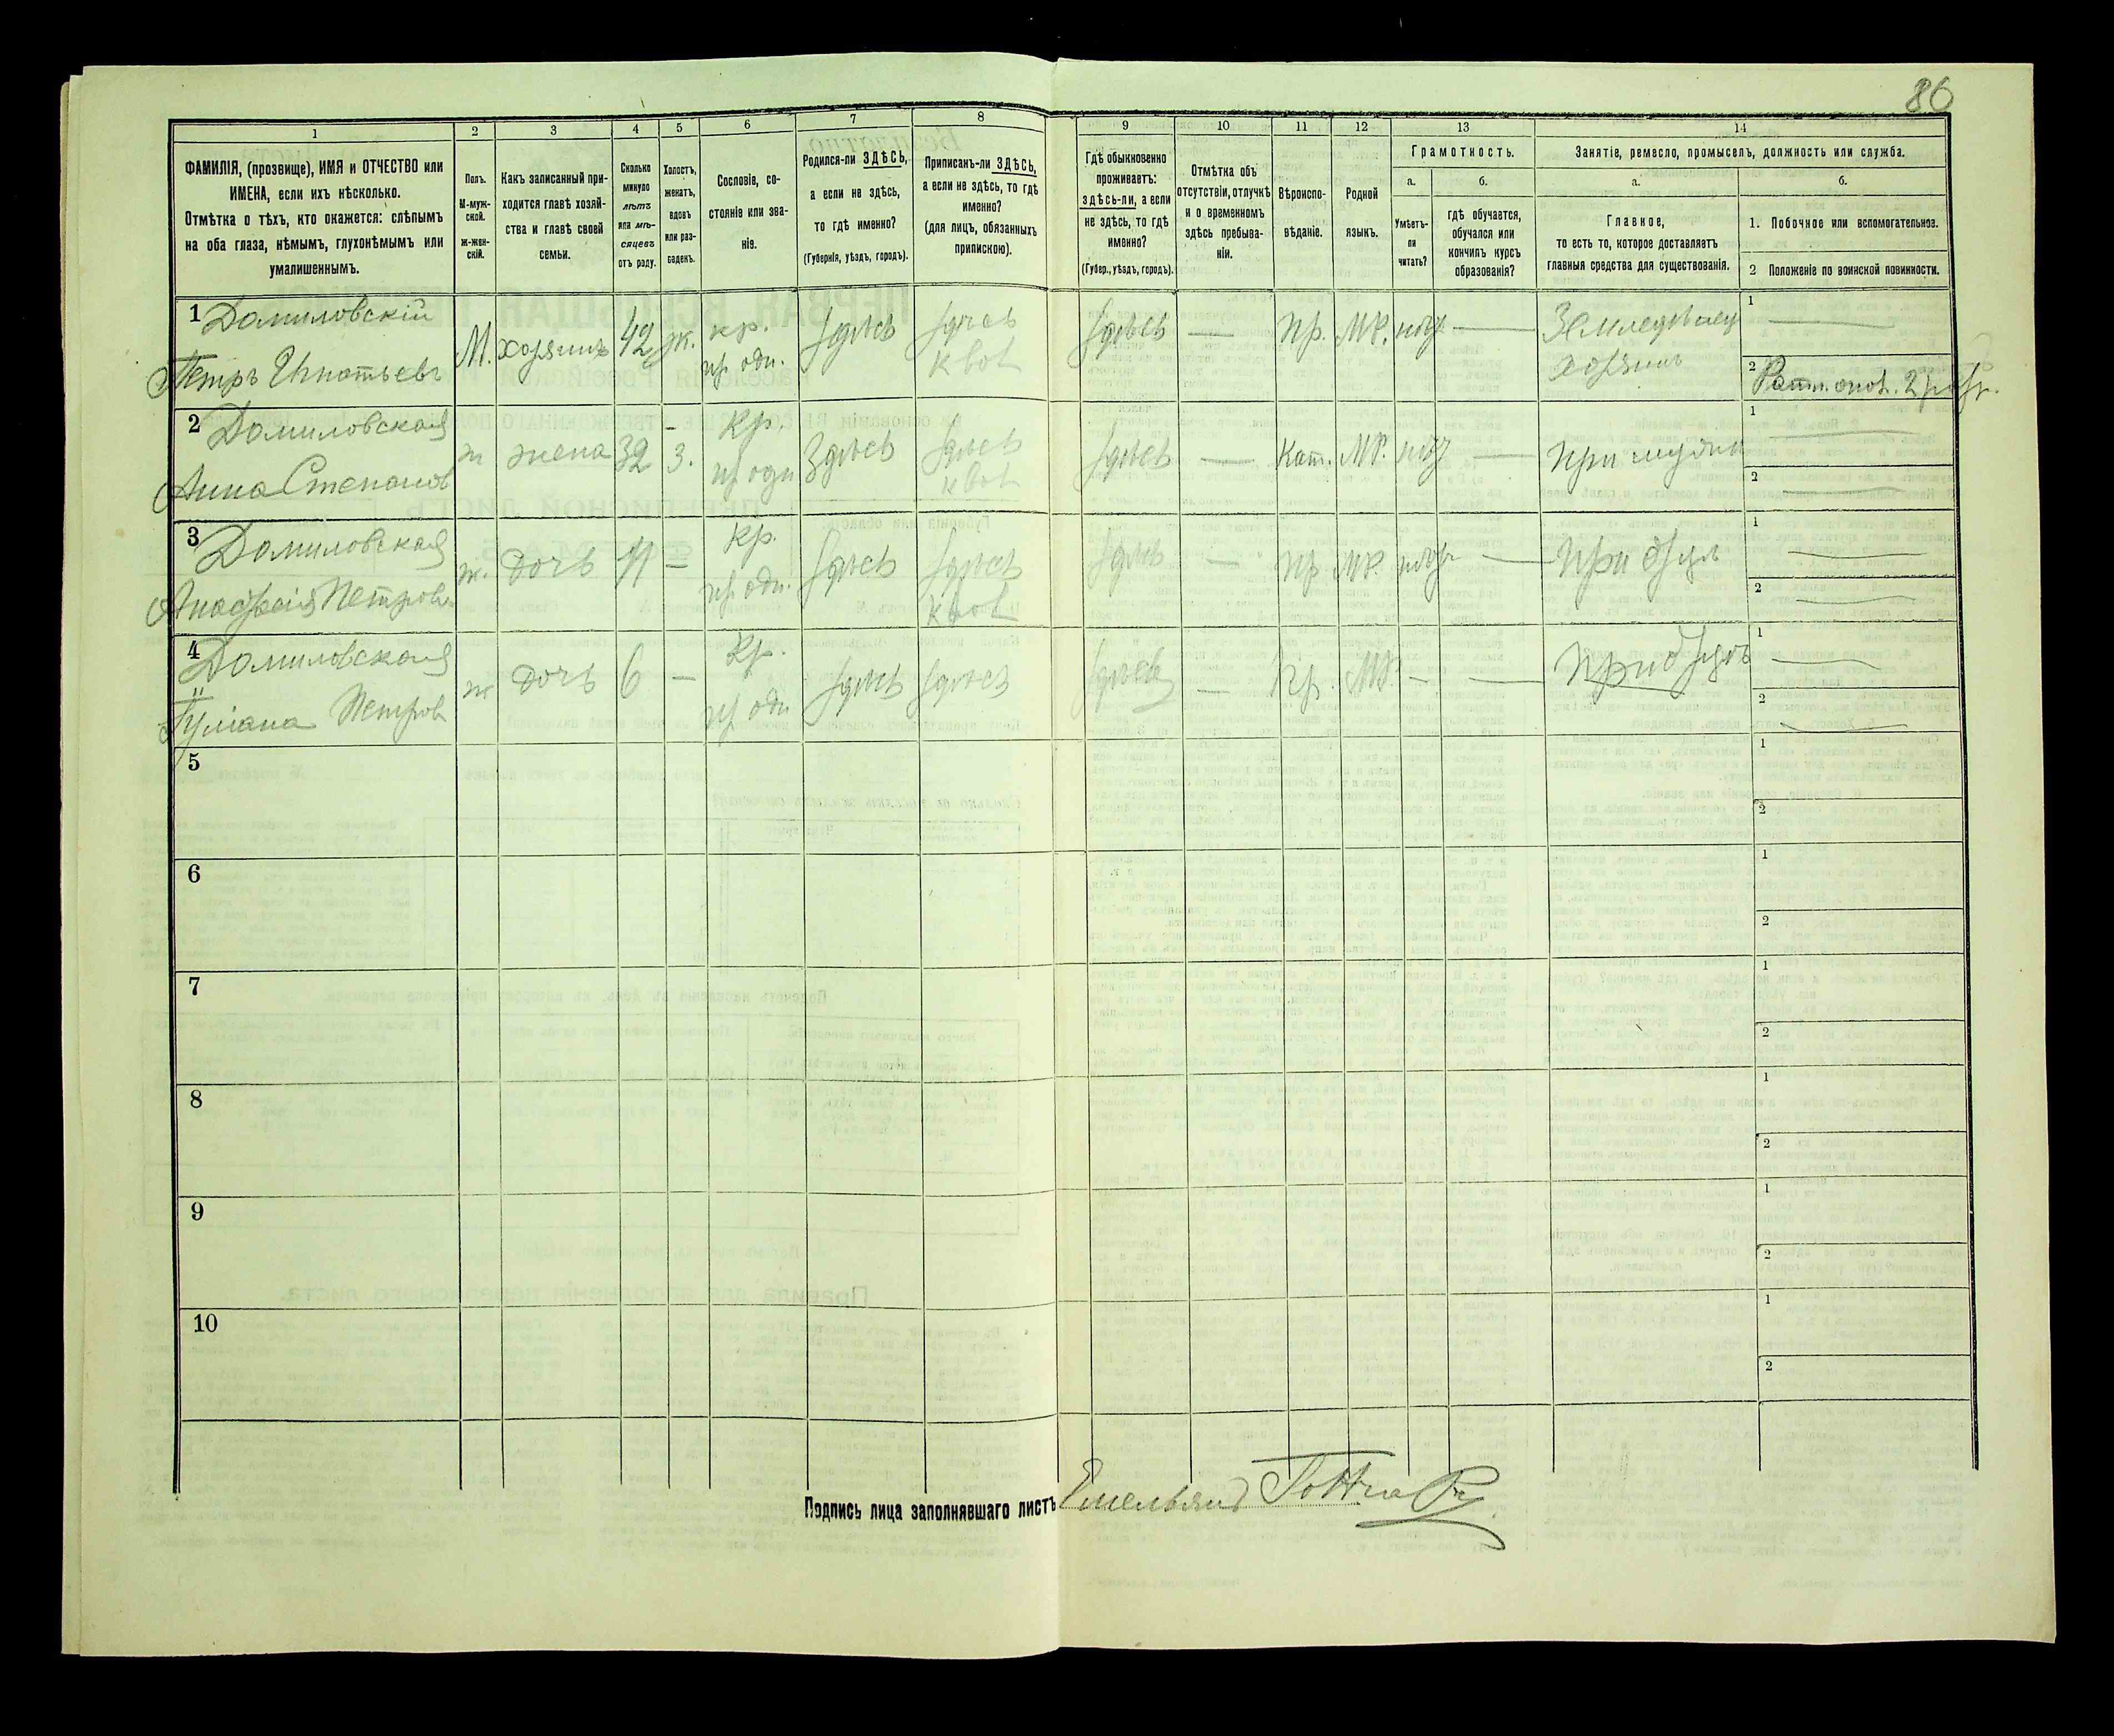 86
1
2
3
4
5
6
7
8
9
10
11
12
13
14
ФАМИЛІЯ, (прозвище), ИМЯ и ОТЧЕСТВО или
ИМЕНА, если ихъ нѣсколько.
Отмѣтка о тѣхъ, кто окажется: слѣпымъ
на оба глаза, нѣмымъ, глухонѣмымъ или
умалишеннымъ.
Полъ.
М-муж-
ской.
ж-жен-
скій.
Какъ записанный при-
ходится главѣ хозяй-
ства и главѣ своей
семьи.
Сколько
минуло
лѣтъ
или мѣ-
сяцевъ
отъ роду.
Холостъ,
женатъ,
вдовъ
или раз-
веденъ.
Сословіе, со-
стояніе или зва-
ніе.
Родился-ли ЗДѢСЬ,
а если не здѣсь,
то гдѣ именно?
(Губернія, уѣздъ, городъ).
Приписанъ-ли ЗДѢСЬ,
а если не здѣсь, то гдѣ
именно?
(для лицъ, обязанныхъ
припискою).
Гдѣ обыкновенно
проживаетъ:
здѣсь-ли, а если
не здѣсь, то гдѣ
именно?
(Губер., уѣздъ, городъ).
Отмѣтка объ
отсутствіи, отлучкѣ
и о временномъ
здѣсь пребыва-
ніи.
Вѣроиспо-
вѣданіе.
Родной
языкъ.
Грамотность.
а.
б.
Умѣетъ-
ли
читать?
гдѣ обучается,
обучался или
кончилъ курсъ
образованія?
Занятіе, ремесло, промыселъ, должность или служба.
а.
б.
Главное,
то есть то, которое доставляетъ
главныя средства для существованія.
1. Побочное или вспомогательное.
2 Положеніе по воинской повинности.
1 Домиловскій
Петръ Игнатьевъ
М. хозяинъ 42 ж. кр. здѣсь здѣсь здѣсь — Пр. МР. —
Земледѣлец
хозяинъ
1 —
2 2 разр.
2 Домиловская
Анна Степанов
ж жена 32 з. Кр. Здѣсь здѣсь здѣсь — Кат. МР. — При мужѣ
1 —
2 —
3 Домиловская
Петров.
ж. дочь 11 — Кр. здѣсь здѣсь здѣсь — Пр МР. — При отцѣ
1 —
2 —
4 Домиловская
Петров
ж дочь 6 — Кр. здѣсь здѣсь здѣсь — Пр. МР. — —
1 —
2 —
5
1
2
6
1
2
7
1
2
8
1
2
9
1
2
10
1
2
Подпись лица заполнявшаго листъ Емельянъ